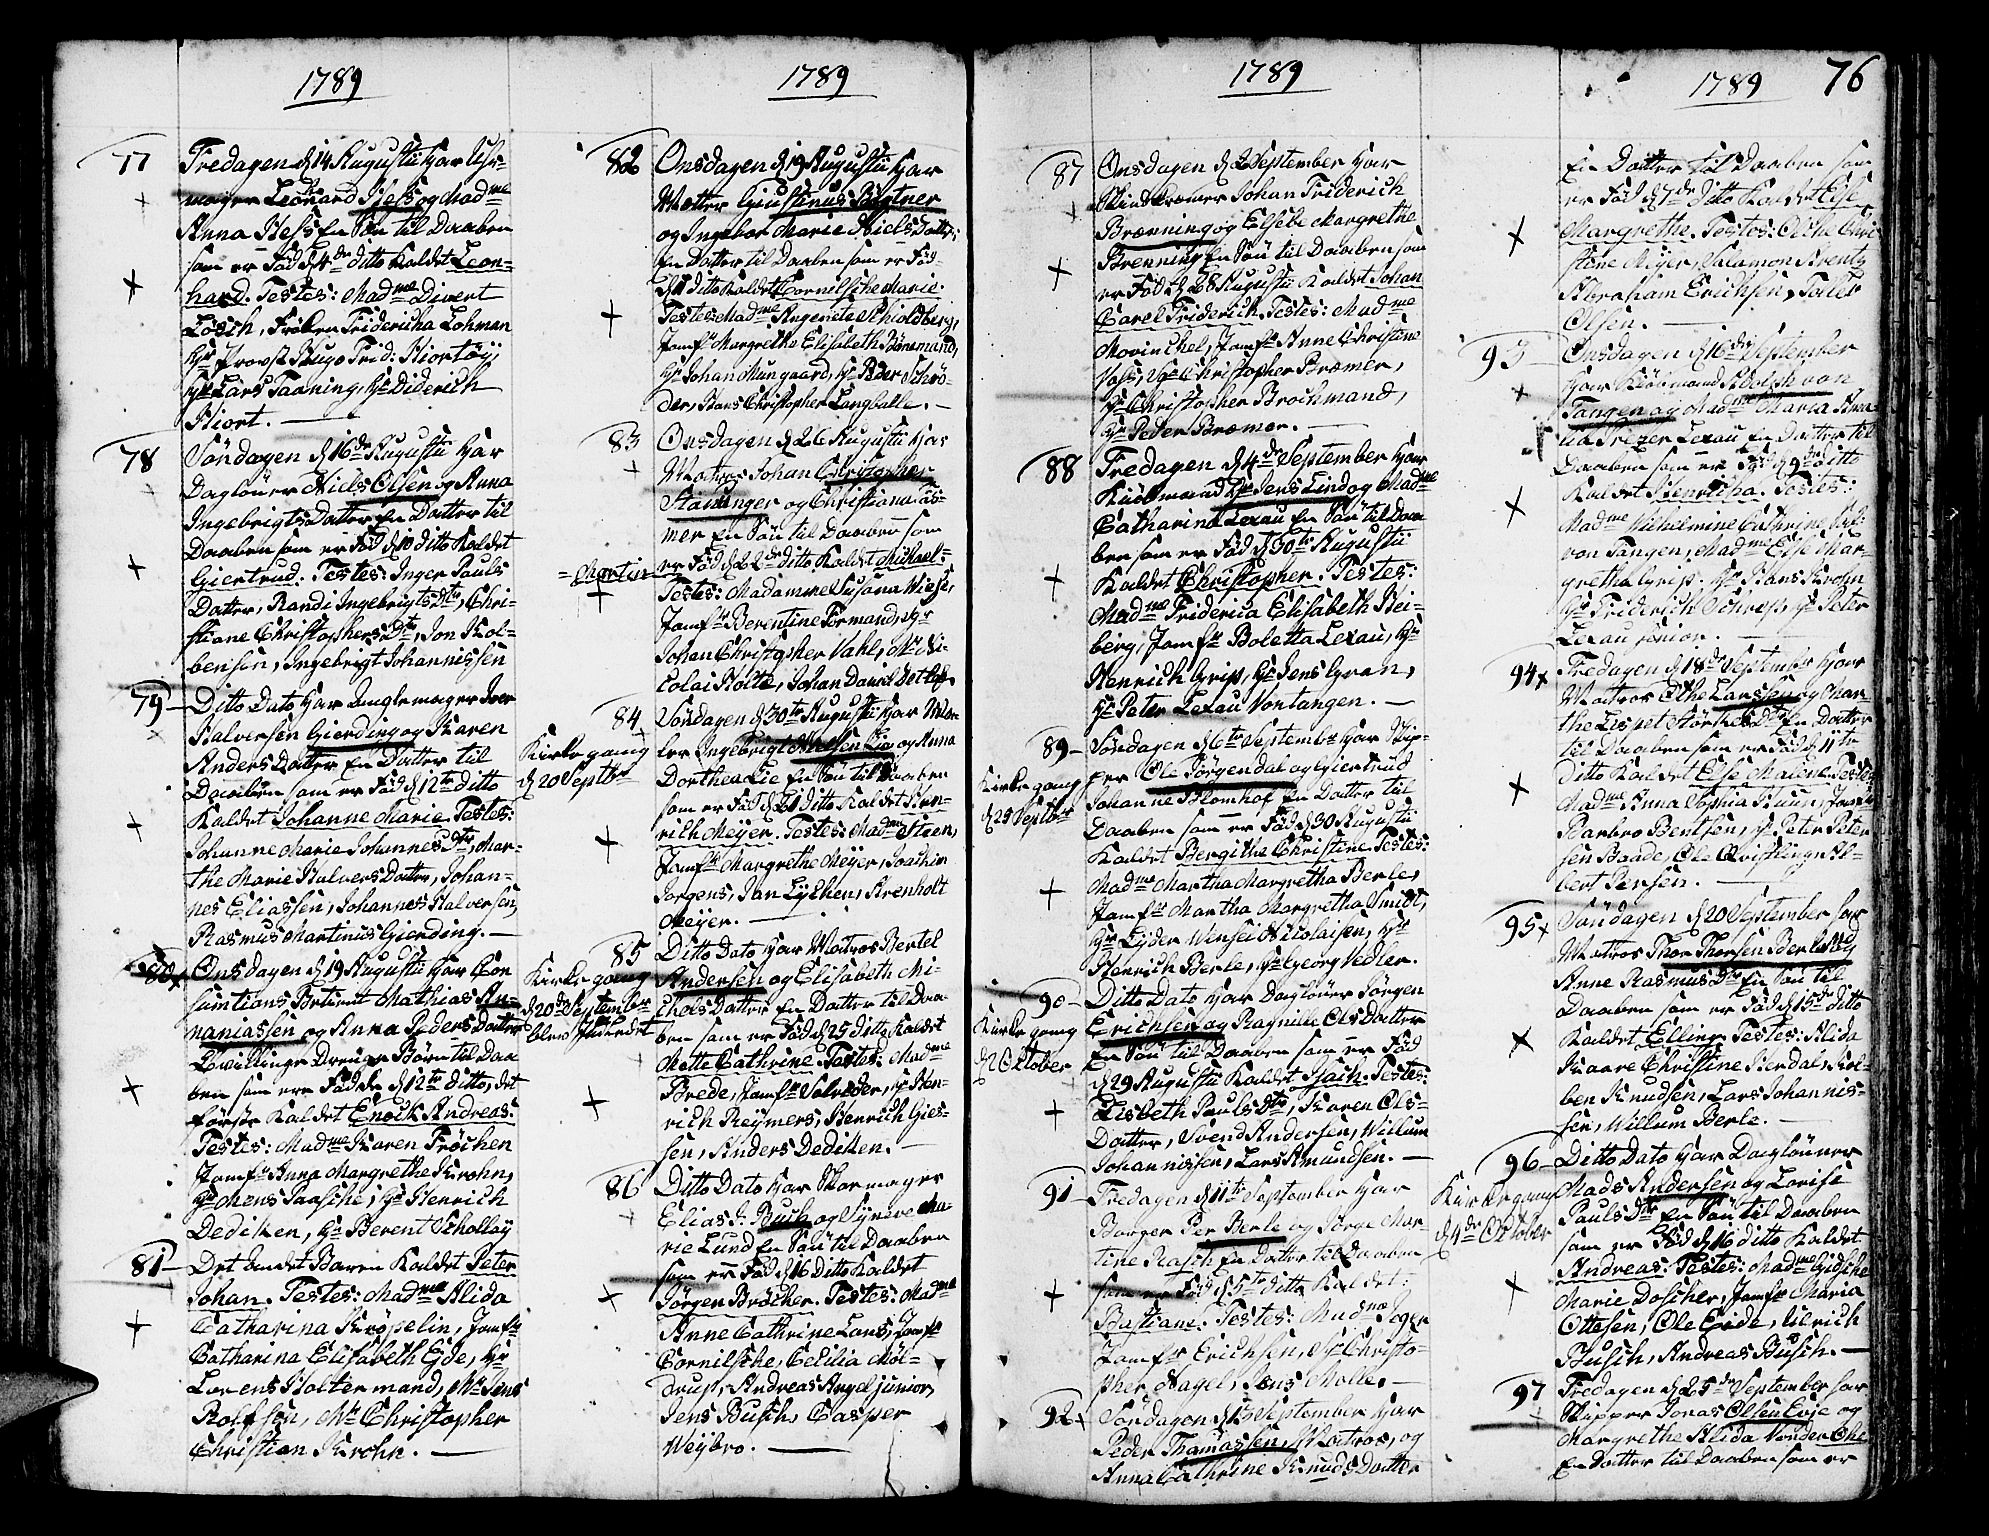 1789
77
Fredagen d 14 Augustii har Uhr-
mager Leonard Hess og Mad^me
Anna Hess En Søn til Daaben
som er Fød d 4^de ditto Kaldet Leon-
hard. Testes: Mad^me Divert
Losch, Frøken Fridericha Lohman
Hr Provst Hugo Frid: Hiortøÿ,
Hr Lars Taaning, Hr Diderich
Hiort.
78
Søndagen d 16^de Augustii har
Dagløner Niels Olsen og Anna
IngebrigtsDatter En Datter til
Daaben som er Fød d 10 ditto Kaldet
Giertrud. Testes: Inger Pauls
Datter, Randi Ingebrigts Dtr, Chri-
stiane Christophers Dtr, Jon Kol-
bensen, Ingebrigt Johannissen
79
Ditto Dato har Iver
Halversen Gierding og Karen
AndersDatter En Datter til
Daaben som er Fød d 12^te ditto
Kaldet Johanne Marie. Testes:
Johanne Marie Johannes Dtr, Mar-
the Marie HalversDatter, Johan-
nes Eliassen, Johannes Halversen,
Rasmus Martinus Gierding.
80
Onsdagen d 19 Augustii har Con
sumtions Betient Mathias An-
naniassen og Anna PedersDatter
Tvillinge Drenge Børn til Daa
ben som ere Fødde d 12^te ditto, det
første Kaldet Enock Andreas:
Testes: Mad^me Karen Frøchen
Jomfr Anna Margrethe Krohn,
Hr Mens Paasche, Hr Henrich
Dediken, Hr Berent Schollaÿ
81
Det andet Baren Kaldet Peter
Johan. Testes: Mad^me Alida
Catharina Krøpelin, Jomfr
Catharina Elisabeth Eide, Hr
Lorens Holtermand, Mr Jens
Rolfsen, Mr Christopher
Christian Krohn.
1789
82
Onsdagen d 19 Augustii har
Matter Giustinus Bøgtner
og Ingebor Marie NielsDatter
En Datter til Daaben som er Fød
d 11 ditto Kaldet Cornilsche Marie.
Testes: Mad^me Angeneta Schioldberg,
Jomfr Margrethe Elisabeth Bønsmand,
Hr Johan Mungaard, Hr Peder Schrø-
der, Hans Christopher Langballe.
83
Onsdagen d 26 Augustii har
Matros Johan Christopher
Stavanger og Christiana As-
mer En Søn til Daaben som
er Fød d 22^de ditto Kaldet Michael-
= Martin
Testes: Madamme Susana Wiese,
Jomfr Berentine Formand, Hr
Johan Christopher Vahl, Mr Ni-
colai Holte, Johan David Detlef.
84
Kirke gang
d 20 Septbr
Søndagen d 30^te Augustii har Møl-
ler Ingebrigt Nielsen Lie og Anna
Dorthea Lie En Søn til Daaben
som er Fød d 21 ditto Kaldet Hen-
rich Meÿer. Testes: Mad^me Steen,
Jomfr Margrethe Meÿer, Joachim
Jorgens, Jan Lÿchen, Arenholt
Meÿer.
85
Kirke gang
d 20^de September
Ditto Dato har Matros Bertel
Andersen og Elisabeth Mi-
chels Datter En Datter til Daa
ben som er Fød d 25 ditto Kaldet
Mette Cathrine. Testes: Mad^me
Brede, Jomfr Salveder, Hr Hen-
rich Reÿmers, Henrich Gies-
sen, Anders Dediken.
86
Ditto Dato har Skomager
Elias J: Busch og Sÿneve Ma-
rie Lund En Søn til Daaben
som er Fød d 16 Ditto Kaldet
Jørgen Brøcker. Testes: Mad^me
Anne Cathrine Lans, Jomfr
Cornilsche, Cecilia Møl-
drup, Andreas Angel junior,
Jens Busch, Casper
Weÿbro.
1789
87
Onsdagen d 2 September har
Skindkræmer Johan Friderich
Brænning og Elsebe Margrethe
Brenning En Søn til Daaben som
er Fød d 28 Augustii Kaldet Johan
Carel Friderich. Testes: Mad^me
Movinchel, Jomfr Anne Christine
Vass, Hr Christopher Bræmer,
Hr Christopher Brochmand,
Hr Peder Bræmer.
88
Fredagen d 4^de September har
Kiøbmand Hr Jens Lind og Mad^me
Catharina Lexau En Søn til Daa
ben som er Fød d 30^te Augustii
Kaldet Christopher. Testes:
Mad^me Friderica Elisabeth Hei-
berg, Jomfr Boletta Lexau, Hr
Henrich Grip, Hr Jens Gran,
Hr Peter Lexau Vontangen.
89
Kirke gang
d 25 Septbr
Søndagen d 6^te Septembr har Skip-
per Ole Jørgendal og Giertrud
Johanne Blomhof En Datter til
Daaben som er Fød d 30 Augustii
Kaldet Bergithe Christine Testes:
Mad^me Martha Margretha Berle,
Jomfr Martha Margretha Smidt,
Hr Lÿder Wensei Nicolaisen, Hr
Henrich Berle, Hr Georg Vedler.
90
Kirke gang
d 2 October
Ditto Dato har Dagløner Jørgen
Erichsen og Ragnille OlsDatter
En Søn til Daaben som er Fød
d 29 Augustii Kaldet Isach. Testes:
Lisbeth Pauls Dtr, Karen Ols-
Datter, Svend Andersen, Willum
Johannissen, Lars Amundsen.
91
Fredagen d 11^te September har
Borger Per Berle og Sørge Mar-
tine Rasch En Datter til Daaben
som er Fød d 5^te ditto Kaldet:
Bastiane. Testes: Mad^me Jeger
Jomfr Erichsen, Hr Christo-
pher Nagel, Jens Molle.
92
Søndagen d 13 September har
Peder Thomassen, Matros, og
Anna Cathrine KnudsDatter
1789
76
En Datter til Daaben som
er Fød d 7^de ditto Kaldet Else
Margrethe. Testes: Olche Chri
stine Meÿer, Salamon Krentz
Abraham Erichsen, Toller
Olsen.
93
Onsdagen d 16^de September
har Kiøbmand Adolph von
Tangen og Mad^me Maria Ama
lia Lexau En Datter til
Daaben som er Fød d 9^de ditto
Kaldet Henricha. Testes:
Mad^me Vilhelmine Cathrine
von Tangen, Mad^me Else Mar-
gretha Grip. Hr Hans Krohn
Hr Friderich Hr Peter
Lexau junior.
94
Fredagen d 18^de September har
Matros Olche Larssen og Mar-
the Lispet Størkers Dtr En Datter
til Daaben som er Fød d 11^te
Ditto Kaldet Else Malene. Testes
Mad^me Anna Sophia Kuun, Jomfr
Barbro Bentsen, Hr Peter Peter
sen Baade, Ole Qvistling Al-
bert Pensen.
95
Søndagen d 20 September har
Matros Thor Thorsen Berle og
Anne Rasmus Dtr En Søn til
Daaben som er Fød d 15^de ditto
Kaldet Elling. Testes: Alida
Kaare Christine Herdal, Kol-
ben Knudsen, Lars Johannis-
sen, Willum Berle.
96
Kirke gang
d 4^de October
Ditto Dato har Dagløner
Mads Andersen og Lovise
Pauls Dtr En Søn til Daaben
som er Fød d 16 ditto Kaldet
Andreas: Testes: Mad^me Gidsche
Marie Doscher, Jomfr Maria
Ottesen, Ole Eide, Ulrich
Busch, Andreas Busch.
97
Fredagen d 25^de September har
Skipper Jonas Olsen Eije og
Margrethe Alida Vonder Ohe
En Datter til Daaben som er